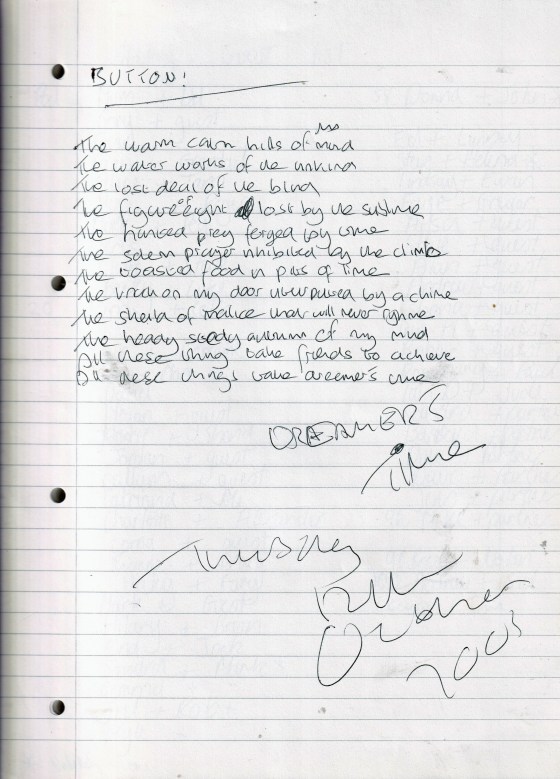 BUTTON!
The warm calm hills of mind
The water works of the unkind
The lost deal of the blind
The figure of eight lost by the sublime
The hunted prey forged by crime
The solem prayer inhibited by the climb
The toasted food in pots of time
The knock on my door interrupted by a chime
The of malice that will never rhyme
The heady steady autumn of my mind
All these thing take friends to achieve
All these things take dreamer's time
DREAMER'S
Time
Thursday
October
2003